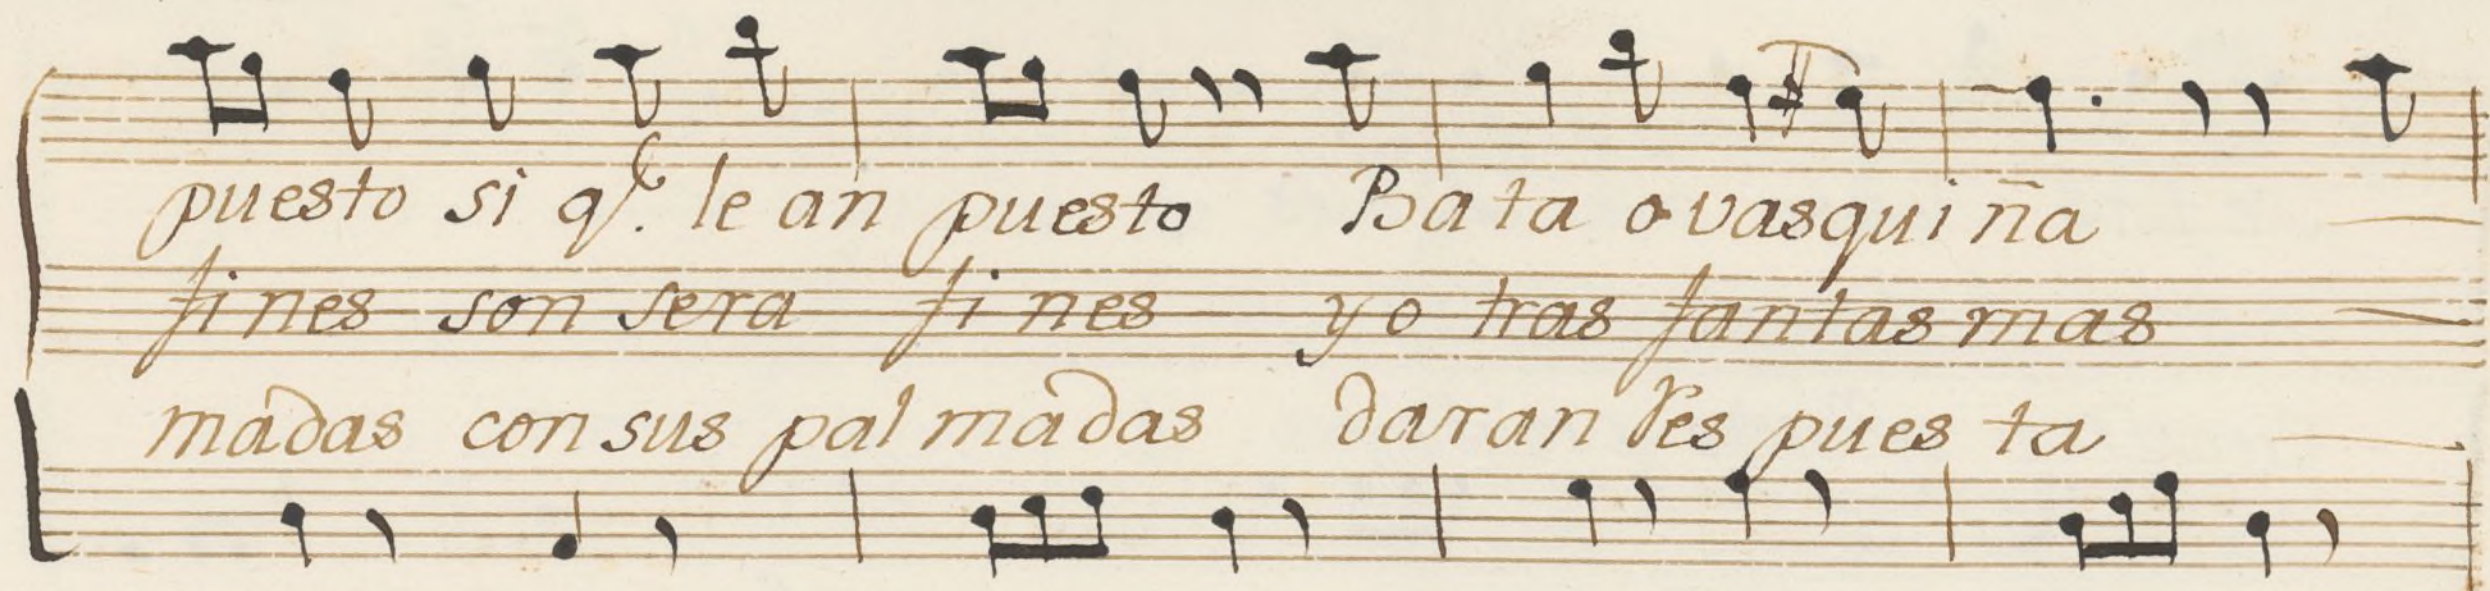 puesto si q.e le an puesto Bata o vasquiña
fines son sera fines yo tras fantasmas
madas con sus pal madas daran Res pues ta